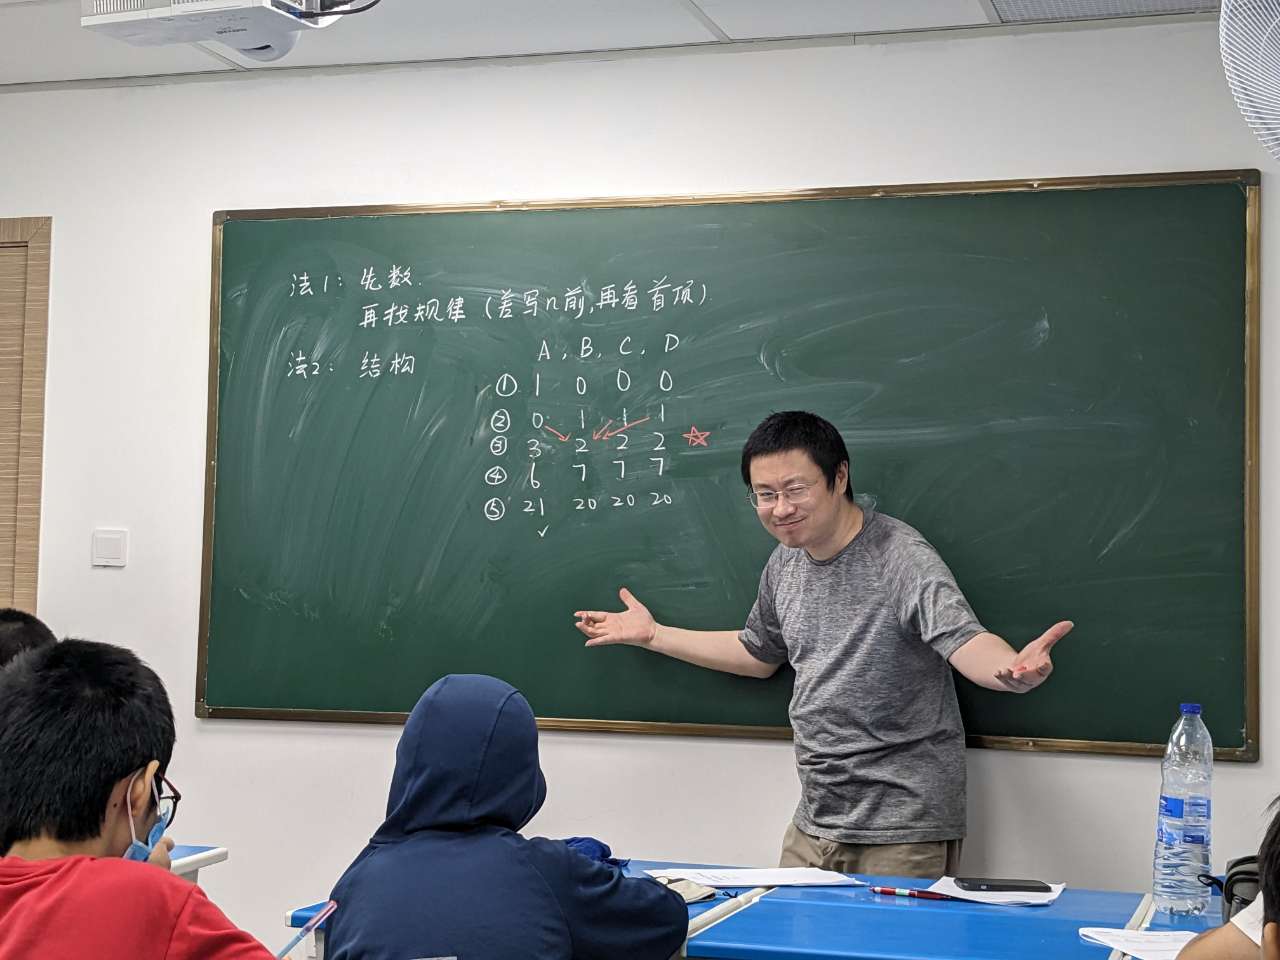 法1: 先数.
再找规律 (差写n前,再看首项).
法2: 结构
A, B, C, D
① 1 0 0 0
② 0 1 1 1
③ 3 2 2 2 ☆
④ 6 7 7 7
⑤ 21 20 20 20
✓